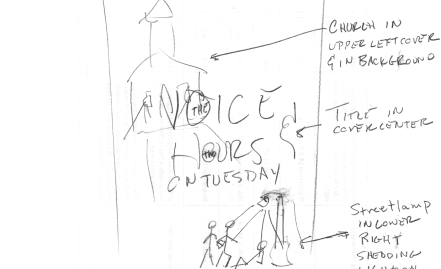 CHURCH IN
UPPER LEFT COVER
& IN BACKGROUND
THE
ICE
TITLE IN
COVER CENTER
HOURS
ON TUESDAY
Streetlamp
IN LOWER
RIGHT
SHEDDING